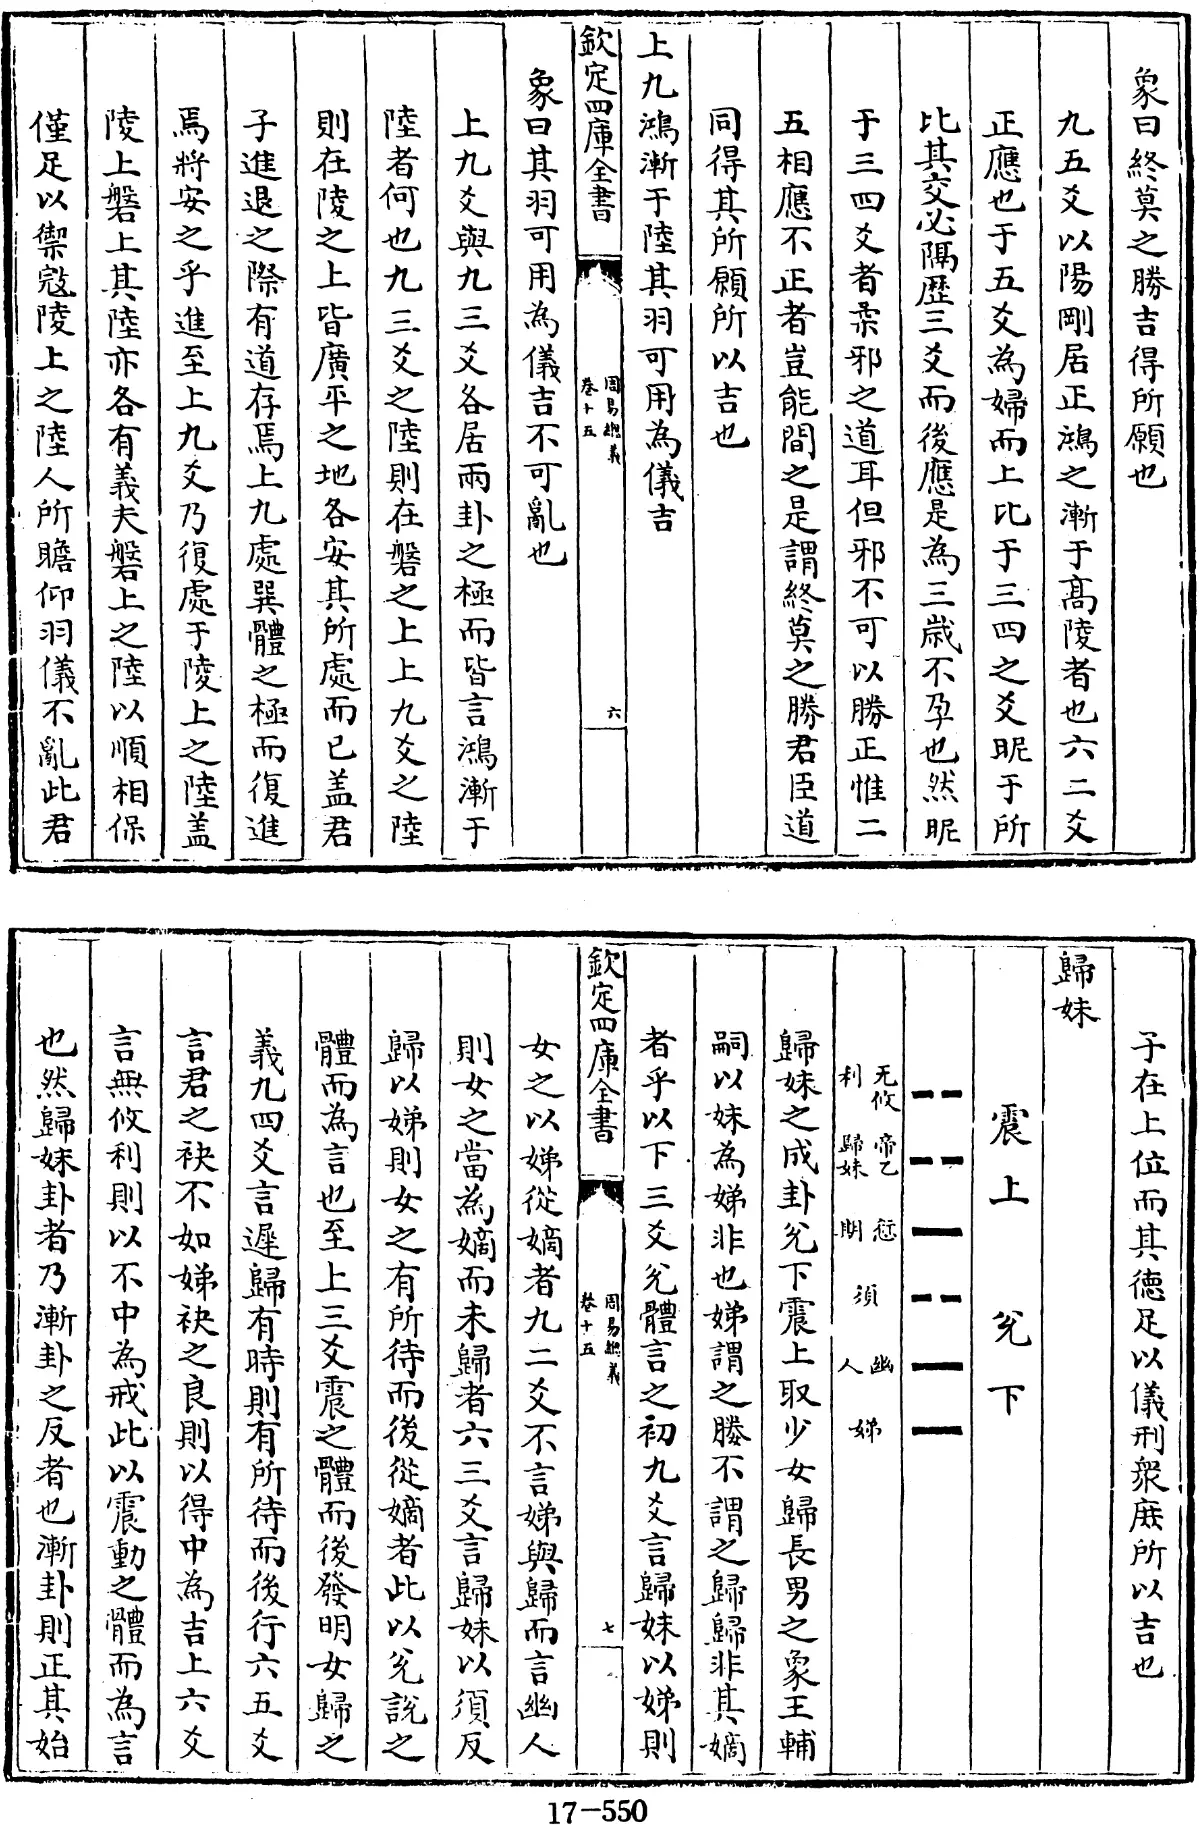 象曰終莫之勝吉得所願也
九五爻以陽剛居正鴻之漸于髙陵者也六二爻
正應也于五爻為婦而上比于三四之爻昵于所
比其交必隔歴三爻而後應是為三歳不孕也然昵
于三四爻者柔邪之道耳但邪不可以勝正惟二
五相應不正者豈能間之是謂終莫之勝君臣道
同得其所願所以吉也
上九鴻漸于陸其羽可用為儀吉
欽定四庫全書
周易總義
卷十五
六
象曰其羽可用為儀吉不可亂也
上九爻與九三爻各居兩卦之極而皆言鴻漸于
陸者何也九三爻之陸則在磐之上上九爻之陸
則在陵之上皆廣平之地各安其所處而已盖君
子進退之際有道存焉上九處巽體之極而復進
焉將安之乎進至上九爻乃復處于陵上之陸盖
陵上磐上其陸亦各有義夫磐上之陸以順相保
僅足以禦寇陵上之陸人所瞻仰羽儀不亂此君
子在上位而其徳足以儀刑衆庶所以吉也
歸妹
震上 兊下
无攸利
帝乙歸妹
愆期
須
幽人
娣
歸妹之成卦兊下震上取少女歸長男之象王輔
嗣以妹為娣非也娣謂之媵不謂之歸歸非其嫡
者乎以下三爻兊體言之初九爻言歸妹以娣則
欽定四庫全書
周易總義
卷十五
七
女之以娣從嫡者九二爻不言娣與歸而言幽人
則女之當為嫡而未歸者六三爻言歸妹以須反
歸以娣則女之有所待而後從嫡者此以兊說之
體而為言也至上三爻震之體而後發明女歸之
義九四爻言遲歸有時則有所待而後行六五爻
言君之袂不如娣袂之良則以得中為吉上六爻
言無攸利則以不中為戒此以震動之體而為言
也然歸妹卦者乃漸卦之反者也漸卦則正其始
17-550